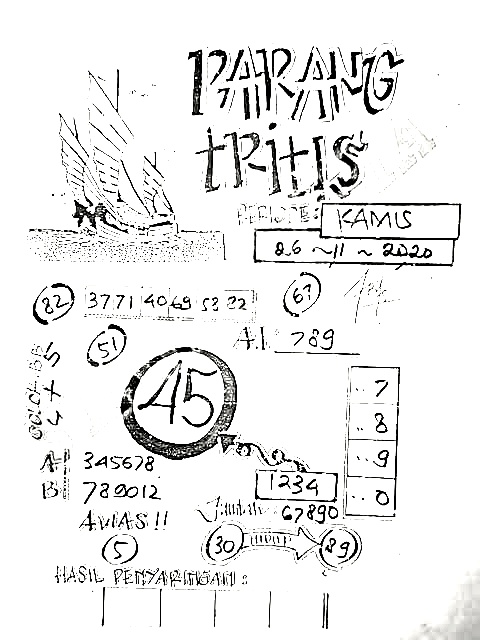 PARANG
TRITIS
PERIODE: KAMIS
26 ~ 11 ~ 2020
82 3771 40 69 53 22 67
51 A.I. 789
45
4 X 5
.. 7
.. 8
.. 9
.. 0
A 345678
B 789012
1234
AWAS!! Jumlah: 67890
5 30 89
HASIL PENYARINGAN: